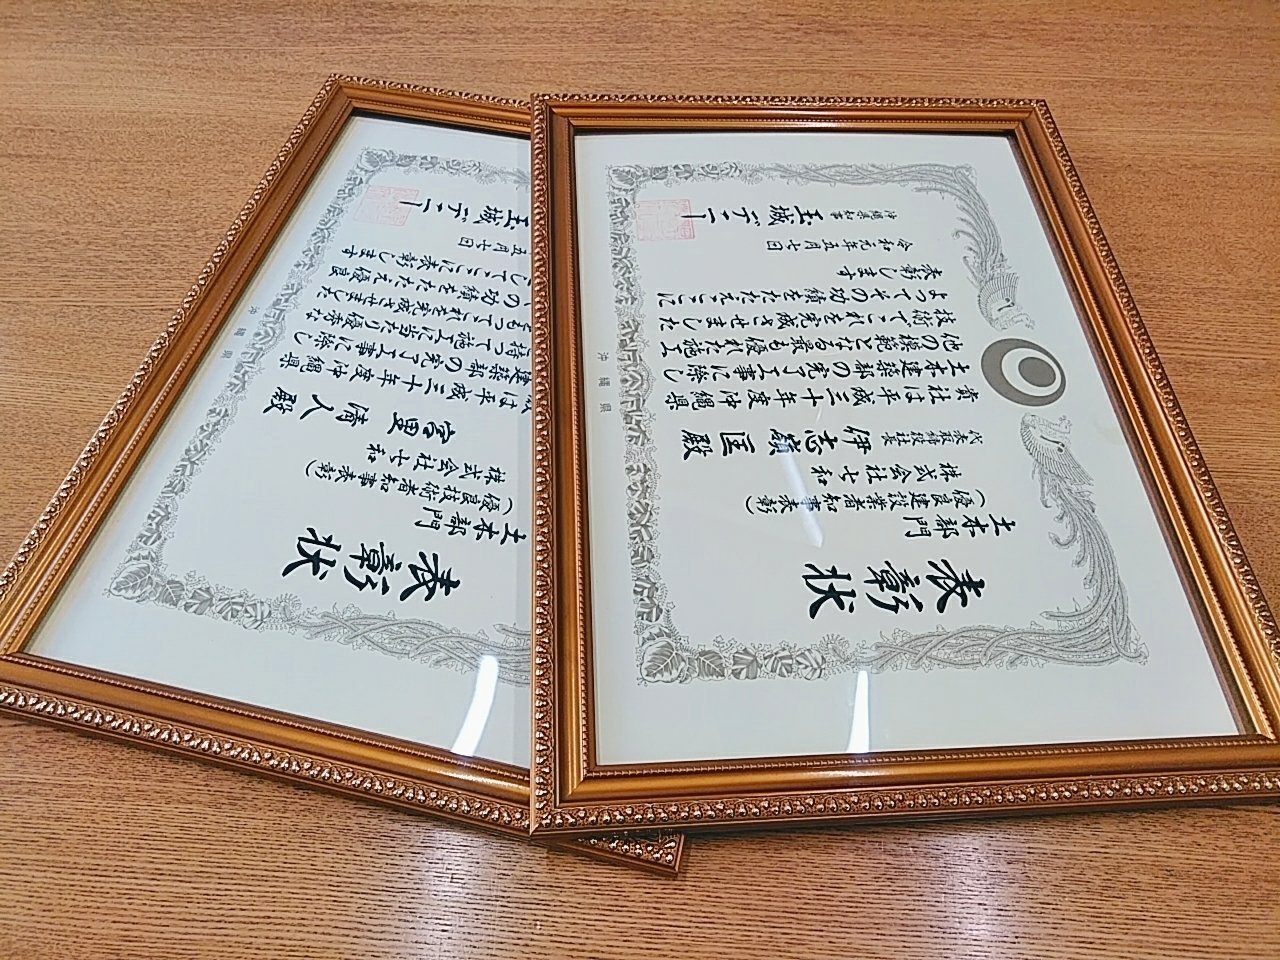 表彰状
土木部門
(優良建設業者知事表彰)
株式会社七和
代表取締役社長
伊志嶺 匡 殿
貴社は平成三十年度沖縄県
土木建築部の完了工事に際し
他の模範となる最も優れた施工
技術でこれを完成させました
よってその功績をたたえここに
表彰します
令和元年五月七日
沖縄県知事 玉城デニー
沖縄県
表彰状
土木部門
(優良技術者知事表彰)
株式会社七和
宮里清人殿
は平成三十年度沖縄県
建築部の完了工事に際し
持って施工に当たり優秀な
をもってこれを完成させました
の功績をたたえ優良
してここに表彰します
五月七日
玉城デニー
沖縄県